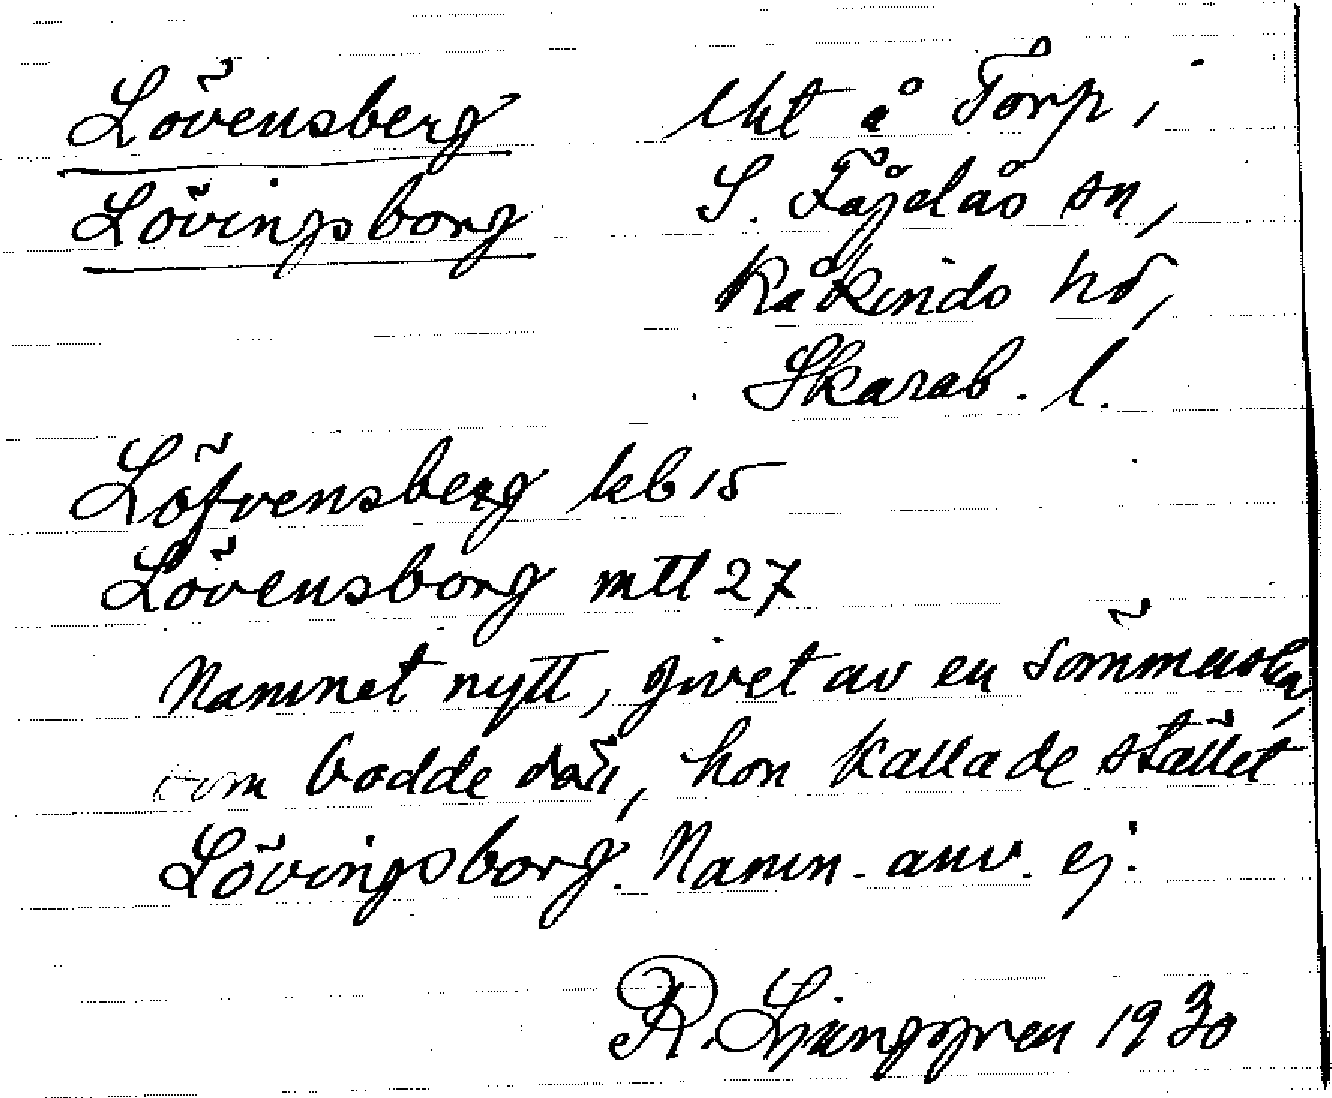 Lövensberg lht å Torp,
Lövingsborg S. Fågelås sn,
Kåkinds hd,
Skarab. l.
Löfvensberg kb 15
Lövensborg mtl 27
Namnet nytt, givet av en sömmerska,
som bodde där, hon kallade stället
Lövingsborg. Namn. anv. ej.
R. Ljunggren 1930